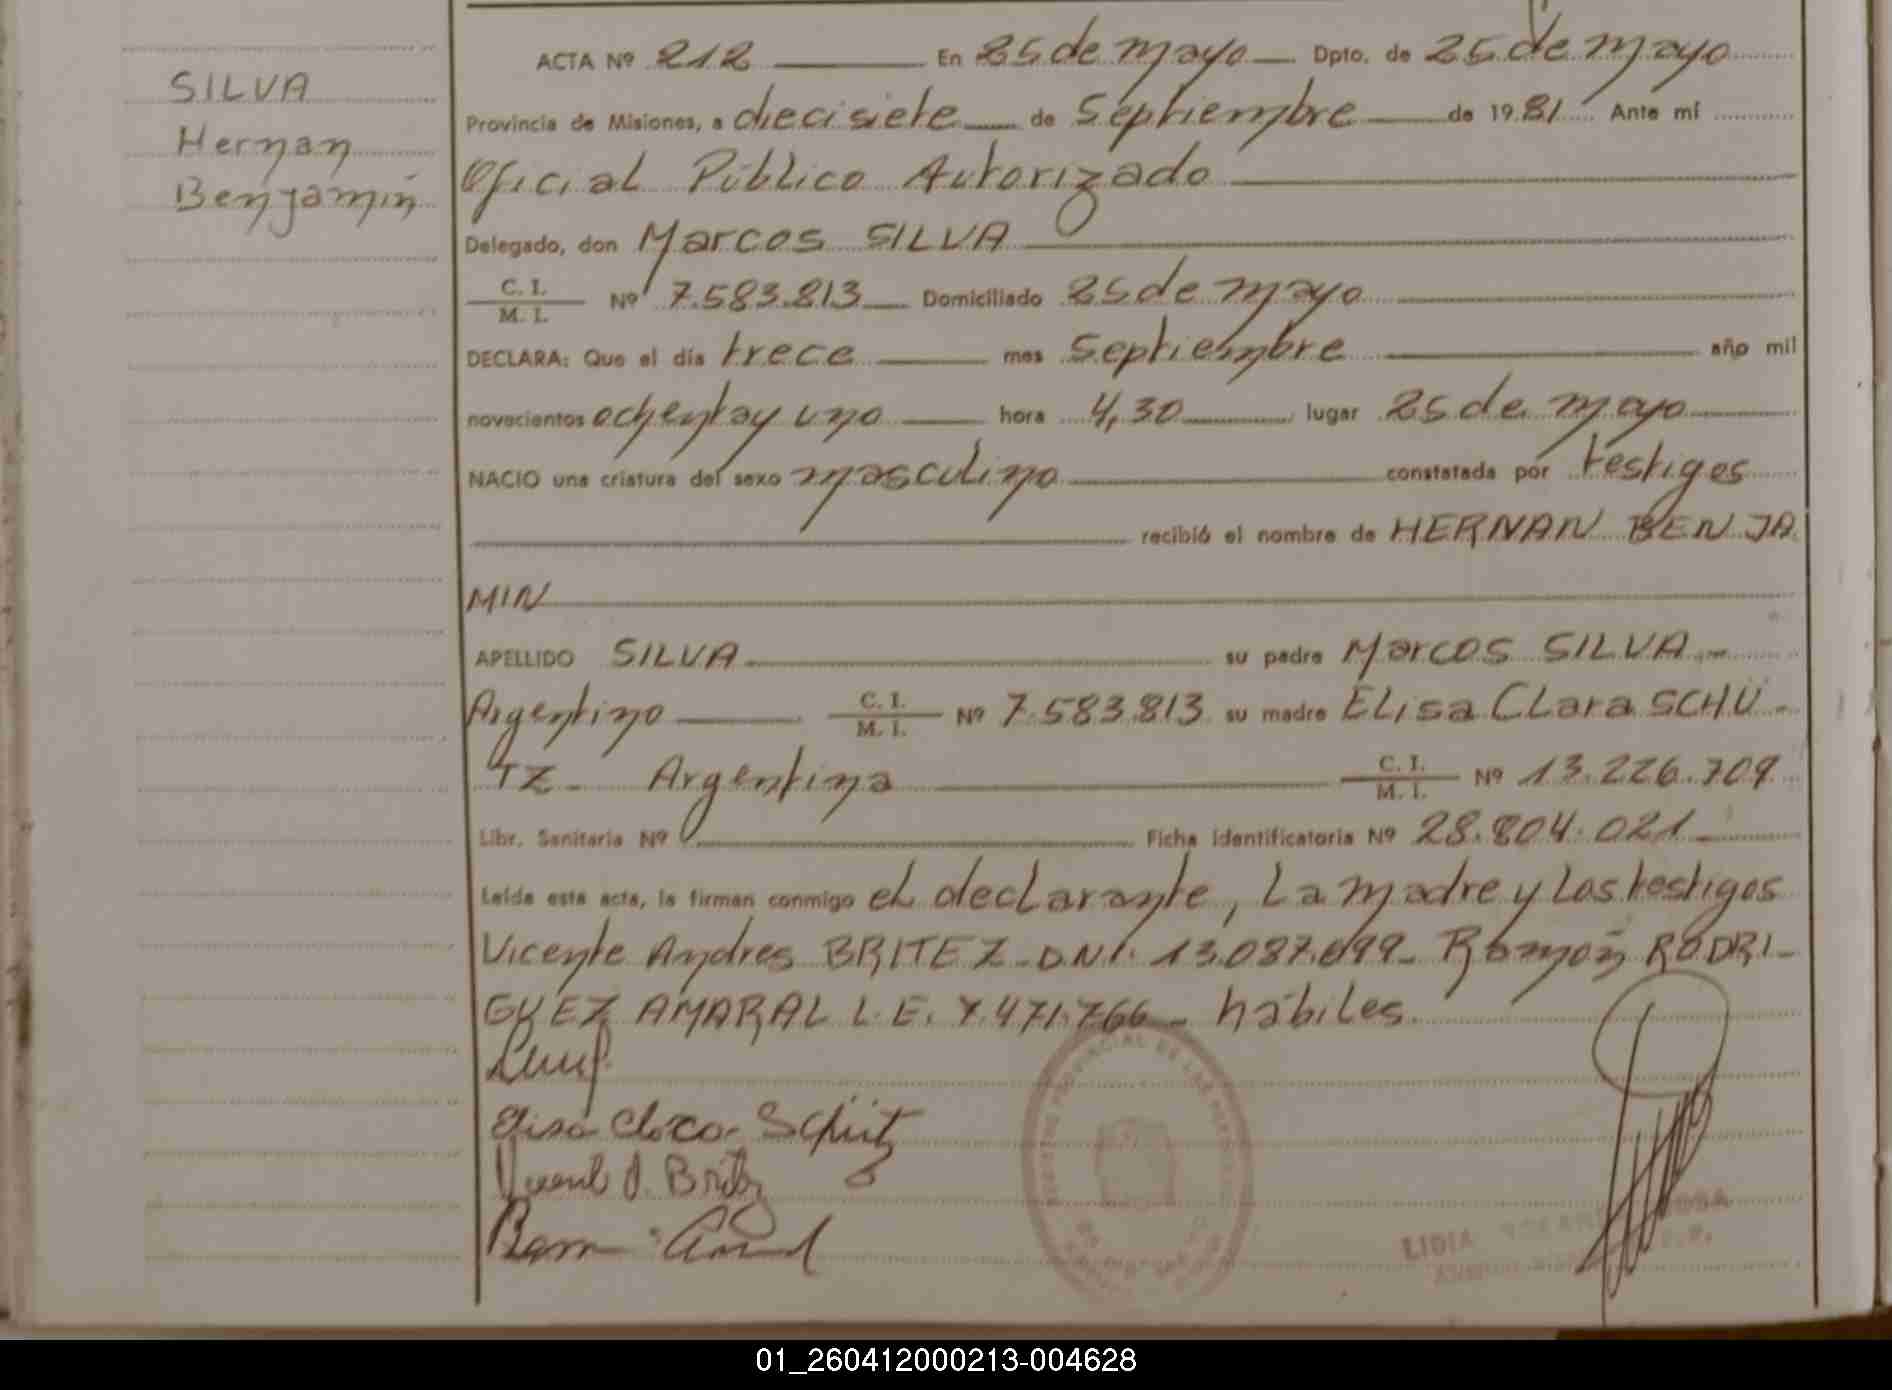 SILVA
Hernan
Benjamín
ACTA Nº 212 En 25 de mayo Dpto. de 25 de mayo
Provincia de Misiones, a diecisiete de Septiembre de 1981 Ante mí
Oficial Público Autorizado
Delegado, don Marcos SILVA
C. I.
M. I. Nº 7.583.813 Domiciliado 25 de mayo
DECLARA: Que el día trece mes Septiembre año mil
novecientos ochenta y uno hora 4,30 lugar 25 de mayo
NACIO una criatura del sexo masculino constatada por testigos
recibió el nombre de HERNAN BENJA
MIN
APELLIDO SILVA su padre Marcos SILVA
Argentino C. I. M. I. Nº 7.583.813 su madre Elisa Clara SCHÜ-
TZ- Argentina C. I. M. I. Nº 13.226.709
Libr. Sanitaria Nº Ficha identificatoria Nº 28.804.021
Leída esta acta, la firman conmigo el declarante, la madre y los testigos
Vicente Andres BRITEZ-DNI. 13.087.099- Ramón RODRI-
GUEZ AMARAL L.E. 7.471.766- hábiles.
Elisa Clara Schütz
Britez
PROVINCIAL DE LAS PERSONAS
LIDIA
01_260412000213-004628